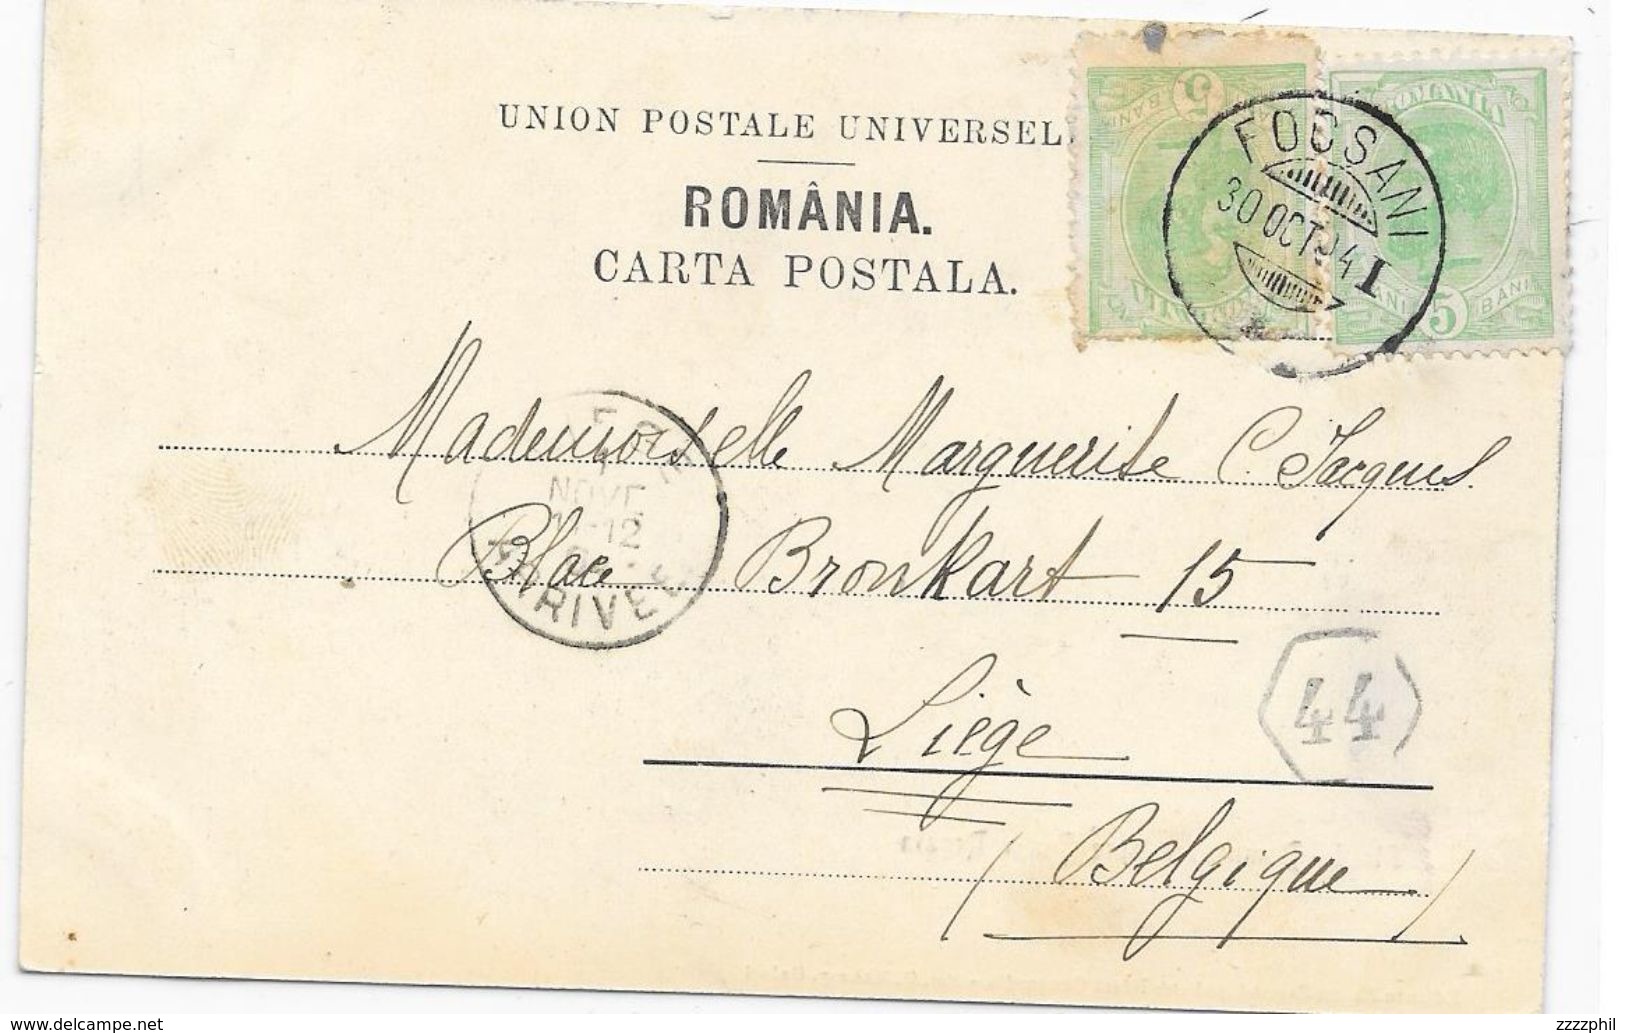 UNION POSTALE UNIVERSEL
ROMÂNIA.
CARTA POSTALA.
5
BANI
ROMANIA
5
BANI
FOCSANI
30 OCT 04
I
Mademoiselle Marguerite C. Jacques
Place Bronkart 15
Liège
(Belgique)
NOVE
12
ARRIVEE
44
www.delcampe.net
zzzzphil